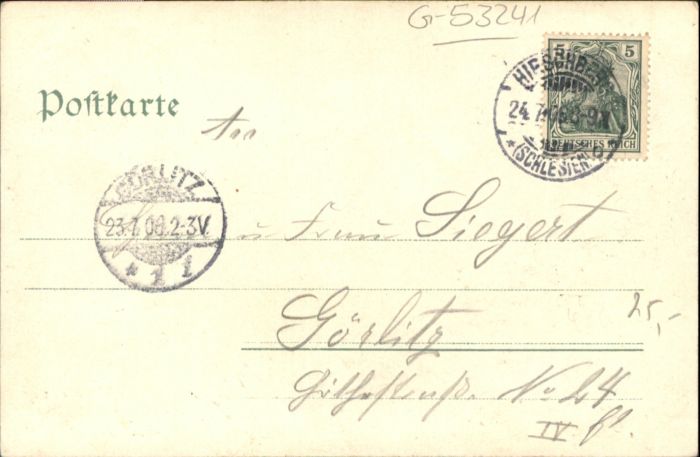 G-53241
5 5
DEUTSCHES REICH
HIRSCHBERG
24.7.06.8-9V.
* (SCHLESIEN.)
Postkarte
An
GÖRLITZ
23.7.06.2-3V.
* 1 i
u Frau Siegert
25,-
Görlitz
No 24
IV